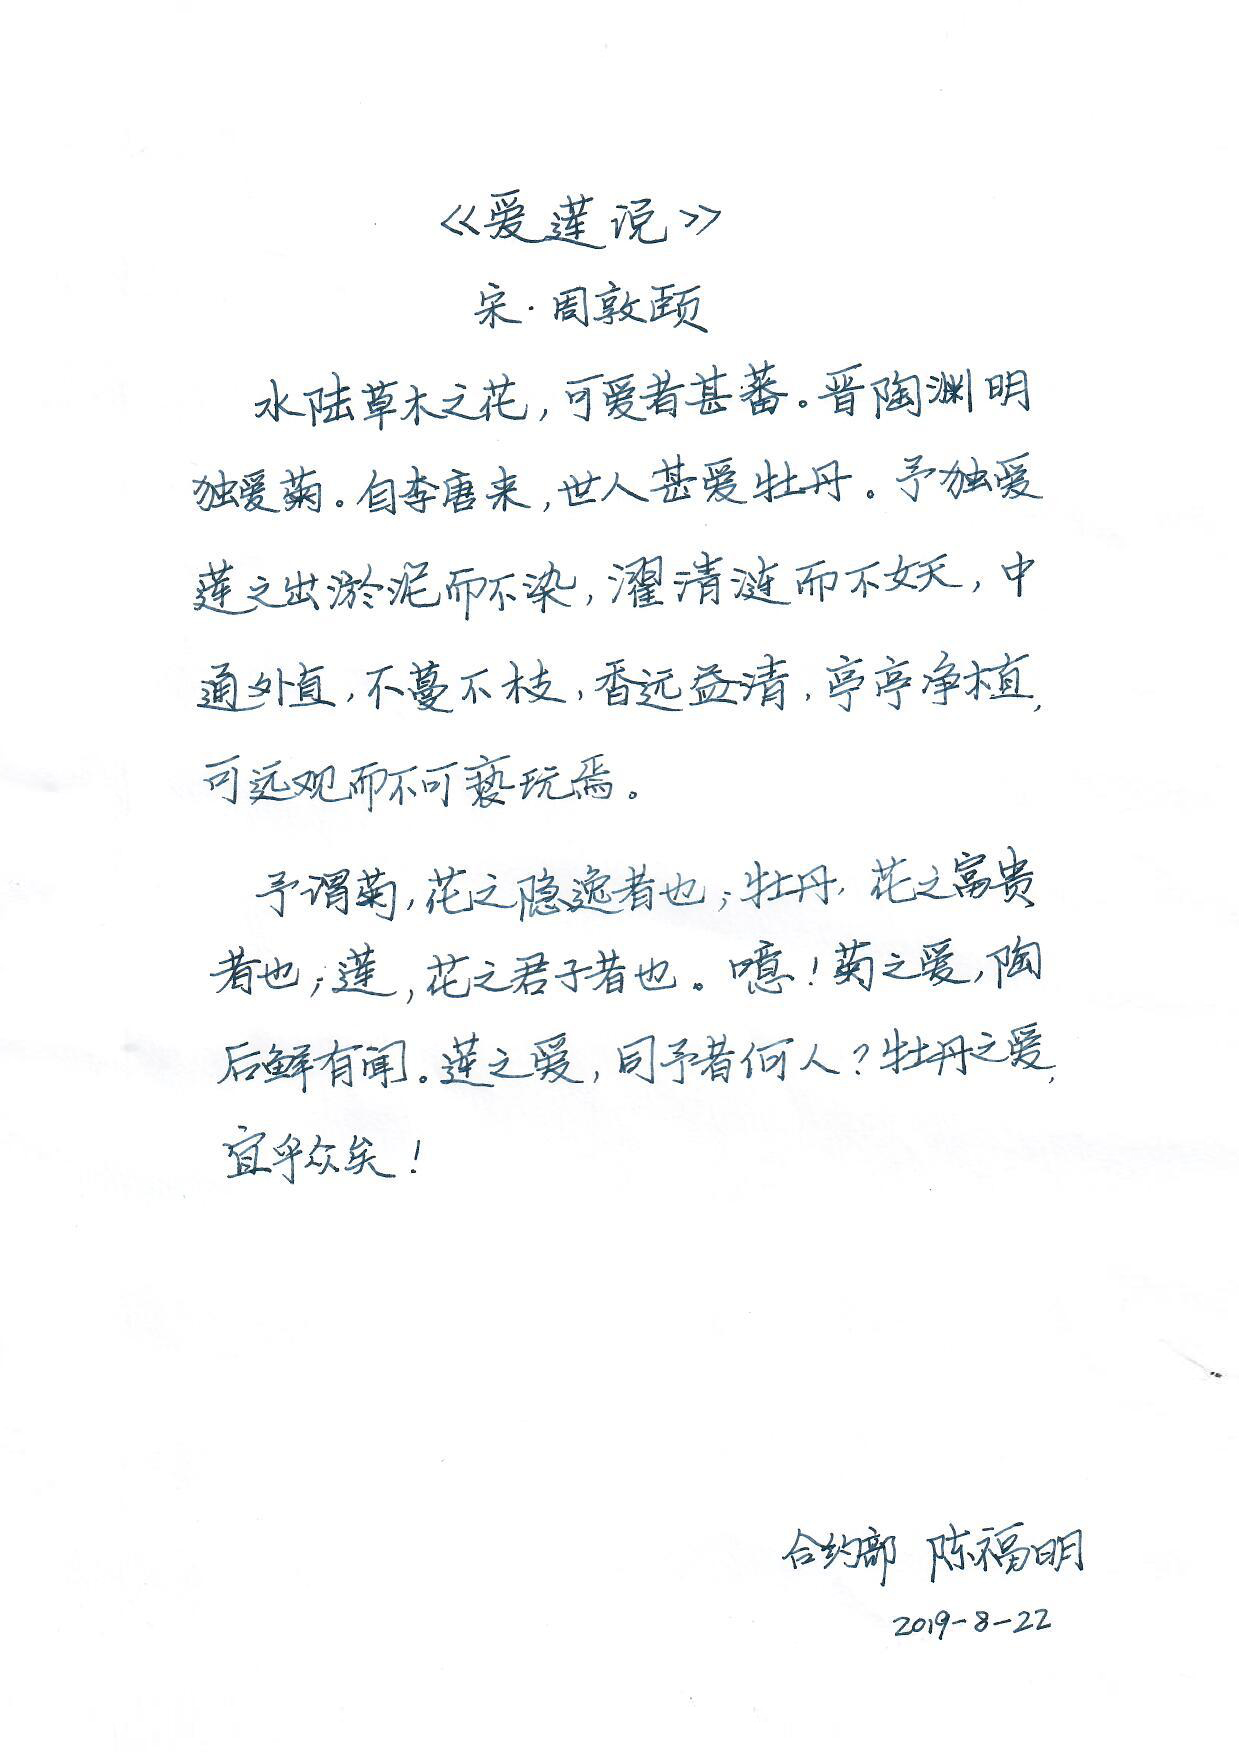 《爱莲说》
宋·周敦颐
水陆草木之花,可爱者甚蕃。晋陶渊明
独爱菊。自李唐来,世人甚爱牡丹。予独爱
莲之出淤泥而不染,濯清涟而不妖,中
通外直,不蔓不枝,香远益清,亭亭净植,
可远观而不可亵玩焉。
予谓菊,花之隐逸者也;牡丹,花之富贵
者也;莲,花之君子者也。噫!菊之爱,陶
后鲜有闻。莲之爱,同予者何人?牡丹之爱,
宜乎众矣!
合约部 陈福明
2019-8-22